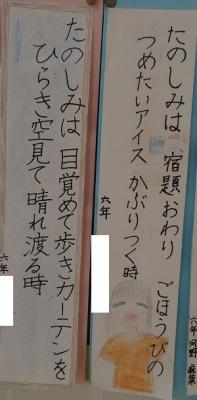 たのしみは 宿題おわり ごほうびの
つめたいアイス かぶりつく時
六年
たのしみは 目覚めて歩きカーテンを
ひらき空見て 晴れ渡る時
六年
六年 河野 麻菜